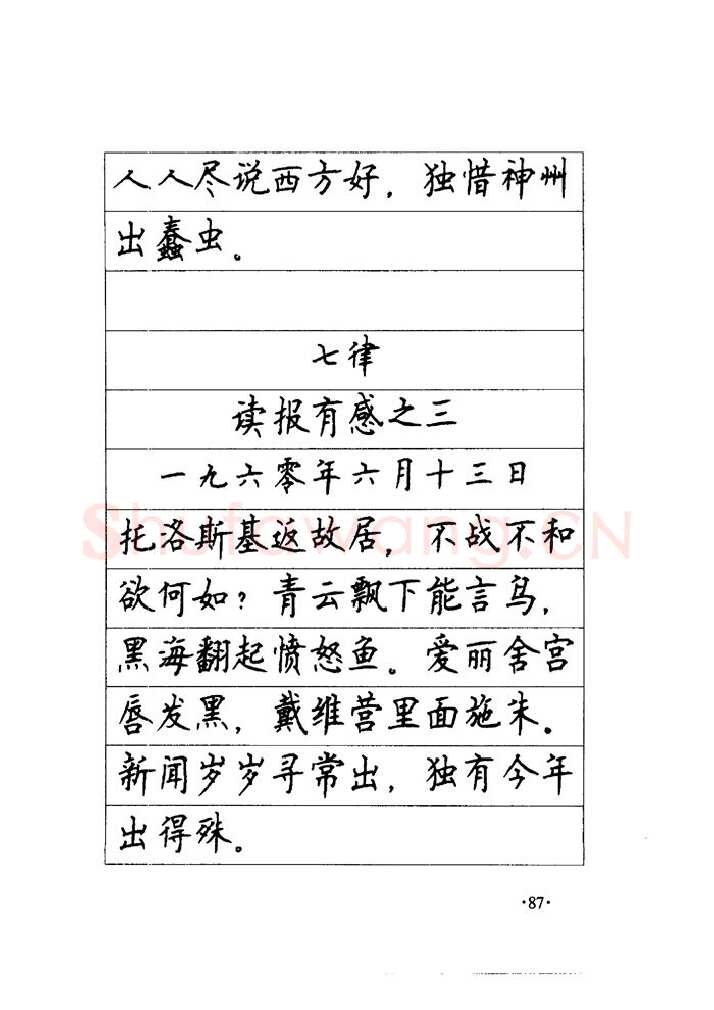 人人尽说西方好，独惜神州
出蠢虫。
七律
读报有感之三
一九六零年六月十三日
托洛斯基返故居，不战不和
欲何如？青云飘下能言鸟，
黑海翻起愤怒鱼。爱丽舍宫
唇发黑，戴维营里面施朱。
新闻岁岁寻常出，独有今年
出得殊。
·87·
Shufawang.CN